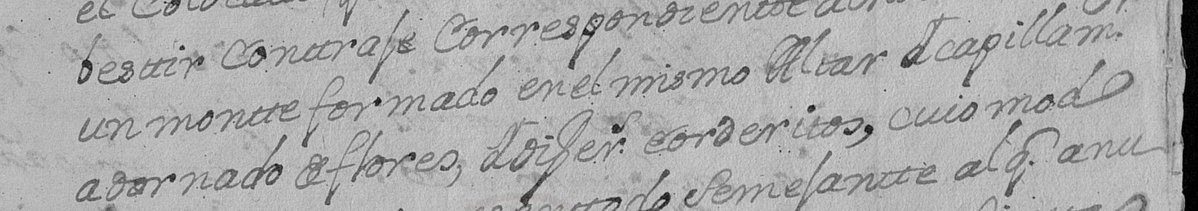 el
bestir conttrase correspondientte
un montte formado en el mismo Altar d capillam.
adornado de flores, d difer. corderitos, cuio modo
semejantte al q. anu